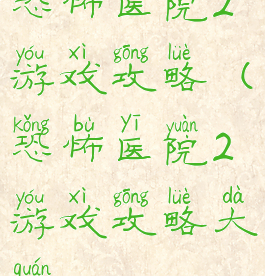 恐怖医院2
yóu xì gōng lüè
游戏攻略（
kǒng bù yī yuàn
恐怖医院2
yóu xì gōng lüè dà
游戏攻略大
quán